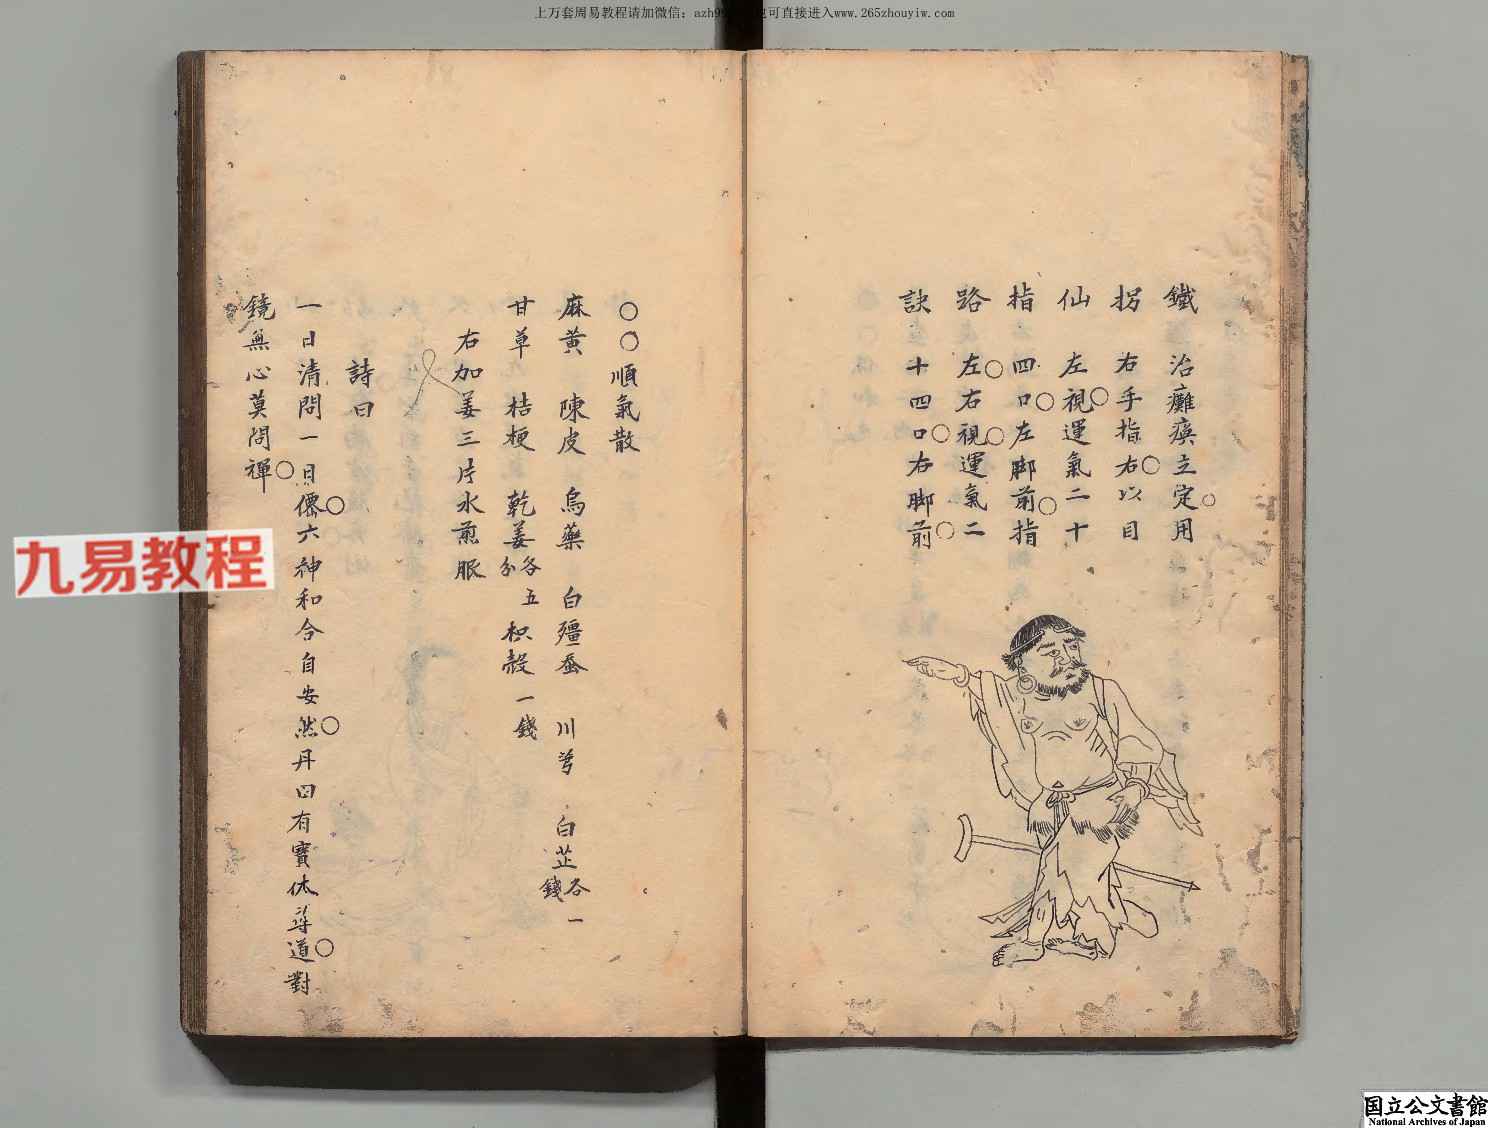 上万套周易教程请加微信：azh9
也可直接进入www.265zhouyiw.com
鐵 治癱瘓立定用
拐 右手指右以目
仙 左視運氣二十
指 四口左脚前指
路 左右視運氣二
訣 十四口右脚前
○○順氣散
麻黄 陳皮 烏藥 白殭蚕 川芎 白芷各一錢
甘草 桔梗 乾姜各五分 枳殻一錢
右加姜三片水煎服
詩曰
一日清閒一日僊六神和合自安然丹田有寶休尋道對
鏡無心莫問禪
九易教程
国立公文書館
National Archives of Japan